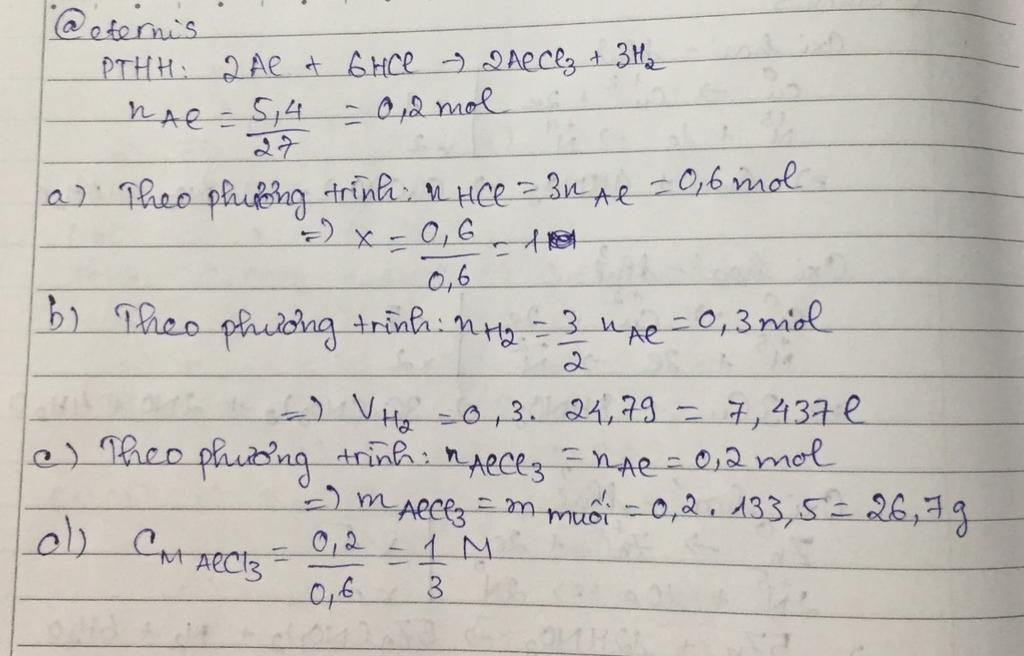 @eternis
PTHH: 2Al + 6HCl → 2AlCl₃ + 3H₂
n Al = 5,4/27 = 0,2 mol
a) Theo phương trình: n HCl = 3n Al = 0,6 mol
=> x = 0,6/0,6 = 1
b) Theo phương trình: n H₂ = 3/2 n Al = 0,3 mol
=> V H₂ = 0,3. 24,79 = 7,437 l
c) Theo phương trình: n AlCl₃ = n Al = 0,2 mol
=> m AlCl₃ = m muối = 0,2. 133,5 = 26,7g
d) C M AlCl₃ = 0,2/0,6 = 1/3 M